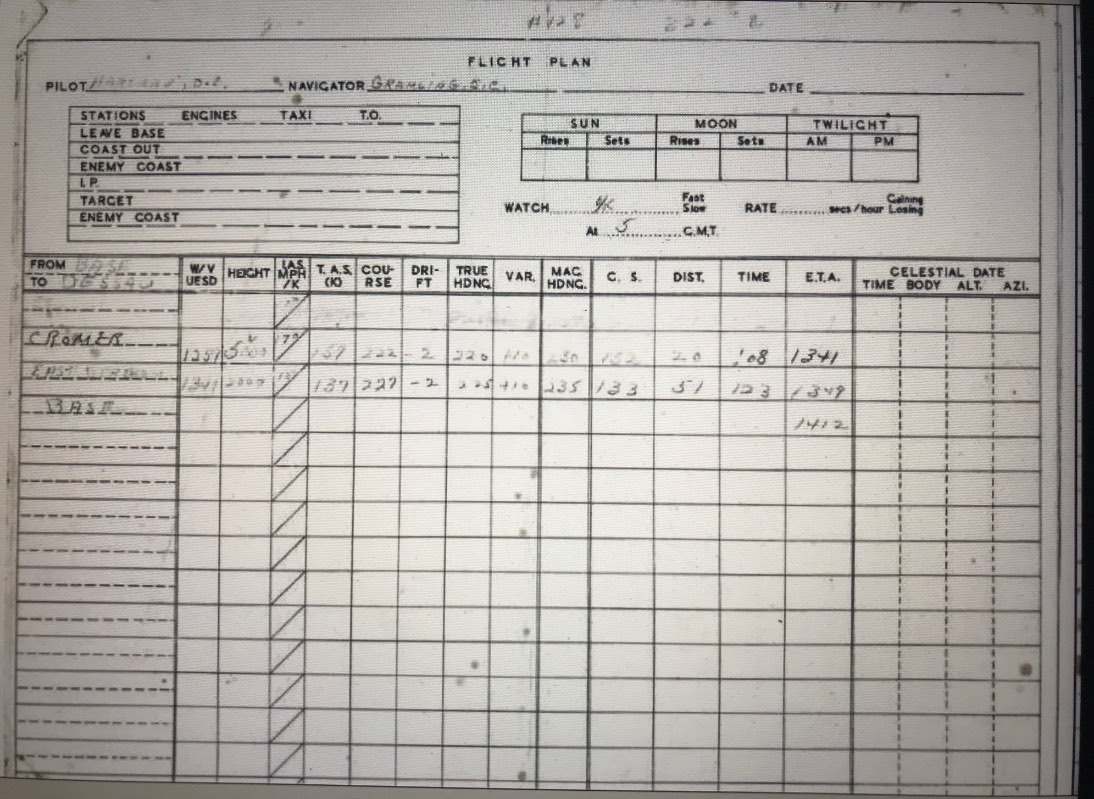 FLIGHT PLAN
PILOT NAVIGATOR GRAMLING, S.C. DATE
STATIONS ENGINES TAXI T.O.
LEAVE BASE
COAST OUT
ENEMY COAST
I.P.
TARGET
ENEMY COAST
SUN MOON TWILIGHT
Rises Sets Rises Sets AM PM
WATCH Fast Slow RATE secs/hour Gaining Losing
At 5 G.M.T.
FROM BASE
TO DESSAU
W/V UESD HEIGHT I.A.S. MPH /K T.A.S. (K) COU- RSE DRI- FT TRUE HDNG. VAR. MAG HDNG. G. S. DIST. TIME E.T.A. CELESTIAL DATE
TIME BODY ALT. AZI.
CROMER
1251 5000 179 157 222 -2 220 +10 230 152 20 :08 1341
1341 2000 137 227 -2 225 +10 235 133 51 :23 1349
BASE
1412